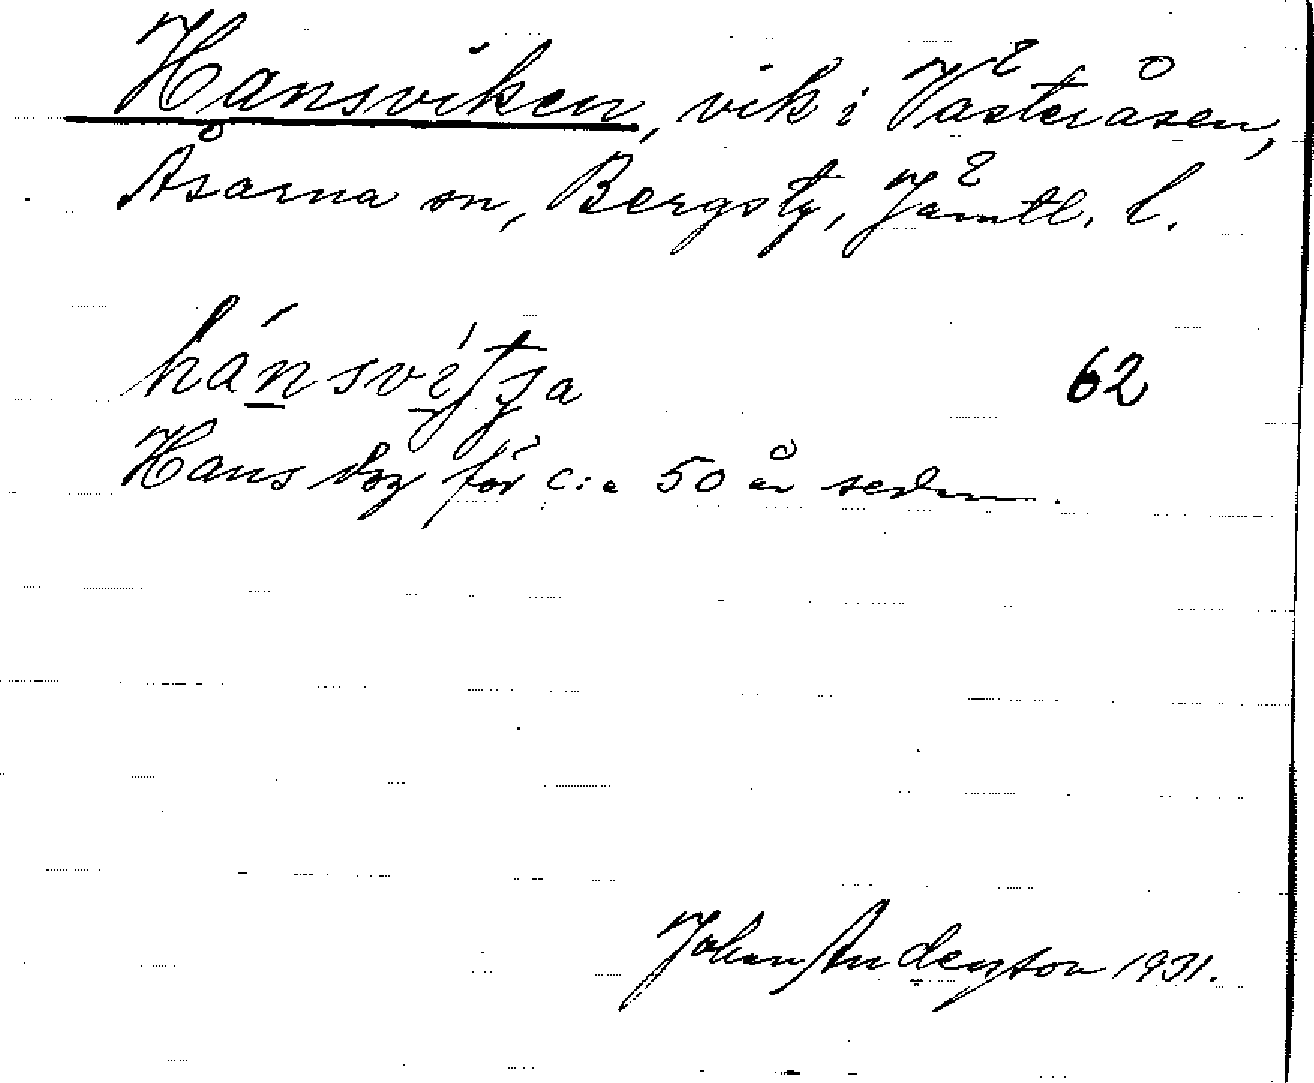 Hansviken, vik i Västeråsen,
Åsarna sn, Bergs tg, Jämtl. l.
62
Hans dog för c:a 50 år sedan.
Johan Andersson 1931.